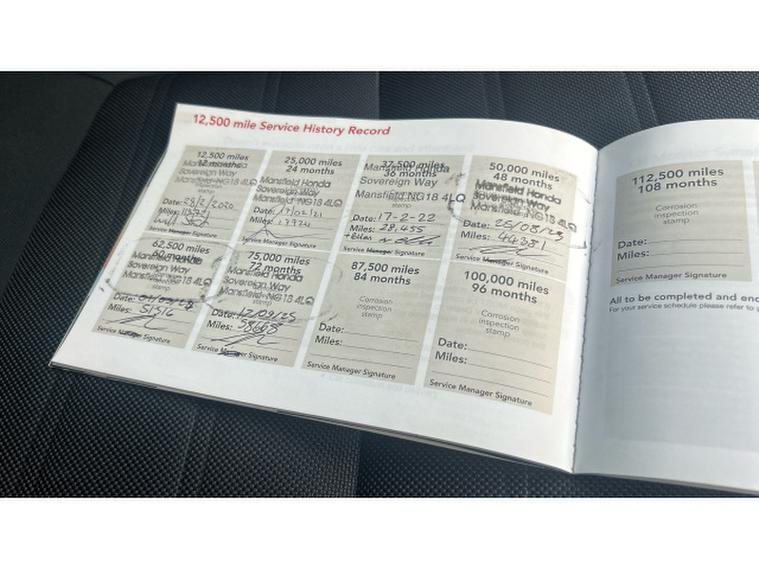 12,500 mile Service History Record
12,500 miles
12 months
Mansfield Honda
Sovereign Way
Mansfield NG18 4LQ
inspection
stamp
Date: 28/2/2020
Miles:
Service Manager Signature
25,000 miles
24 months
Mansfield Honda
Sovereign Way
Mansfield NG18 4LQ
Date: 17/02/21
Miles: 17924
Service Manager Signature
37,500 miles
36 months
Mansfield Honda
Sovereign Way
Mansfield NG18 4LQ
stamp
Date: 17-2-22
Miles: 28,455
Service Manager Signature
50,000 miles
48 months
Mansfield Honda
Sovereign Way
Mansfield NG18 4LQ
Date: 25/08/23
Miles: 44381
Service Manager Signature
62,500 miles
60 months
Mansfield Honda
Sovereign Way
Mansfield NG18 4LQ
stamp
Date:
Miles: 51516
Service Manager Signature
75,000 miles
72 months
Mansfield Honda
Sovereign Way
Mansfield NG18 4LQ
Date: 12/09/25
Miles: 58668
Service Manager Signature
87,500 miles
84 months
Corrosion
inspection
stamp
Date:
Miles:
Service Manager Signature
100,000 miles
96 months
Corrosion
inspection
stamp
Date:
Miles:
Service Manager Signature
112,500 miles
108 months
Corrosion
inspection
stamp
Date:
Miles:
Service Manager Signature
All to be completed and
For your service schedule please refer to